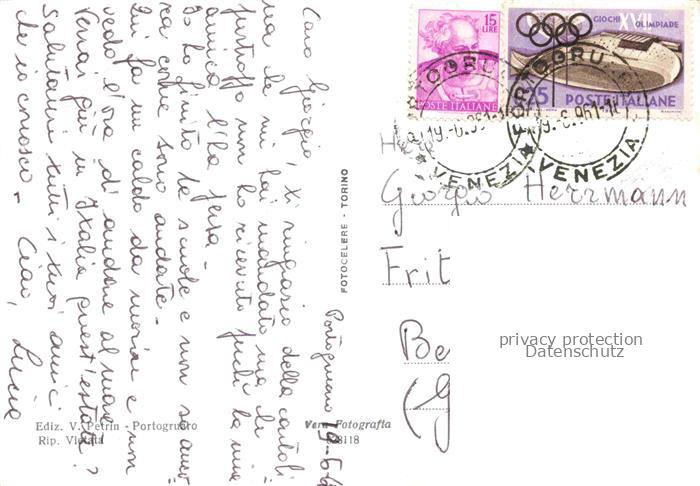 Caro Giorgio, ti ringrazio della cartoli-
na che mi hai mandato ma che
purtroppo non ho ricevuto perchè la mia
amica l'ha persa -
Io ho finito le scuole e non so anco-
ra come sono andate -
Qui fa un caldo da morire e non
vedo l'ora d'andare al mare
Verrai giù in Italia quest'estate?
Salutami tutti i tuoi amici
che io conosco - Ciao,
Lucia
Portogruaro 19-6-61
FOTOCELERE - TORINO
Ediz. V. Petrin - Portogruaro
Rip. Vietata
Vera Fotografia
15
LIRE
POSTE ITALIANE
GIOCHI XVII OLIMPIADE
25 POSTE ITALIANE
PORTOGRUARO
19.-6.961-1
VENEZIA
PORTOGRUARO
19.-6.961-1
VENEZIA
Herr
Giorgio Herrmann
Frit
Be
(G
privacy protection
Datenschutz